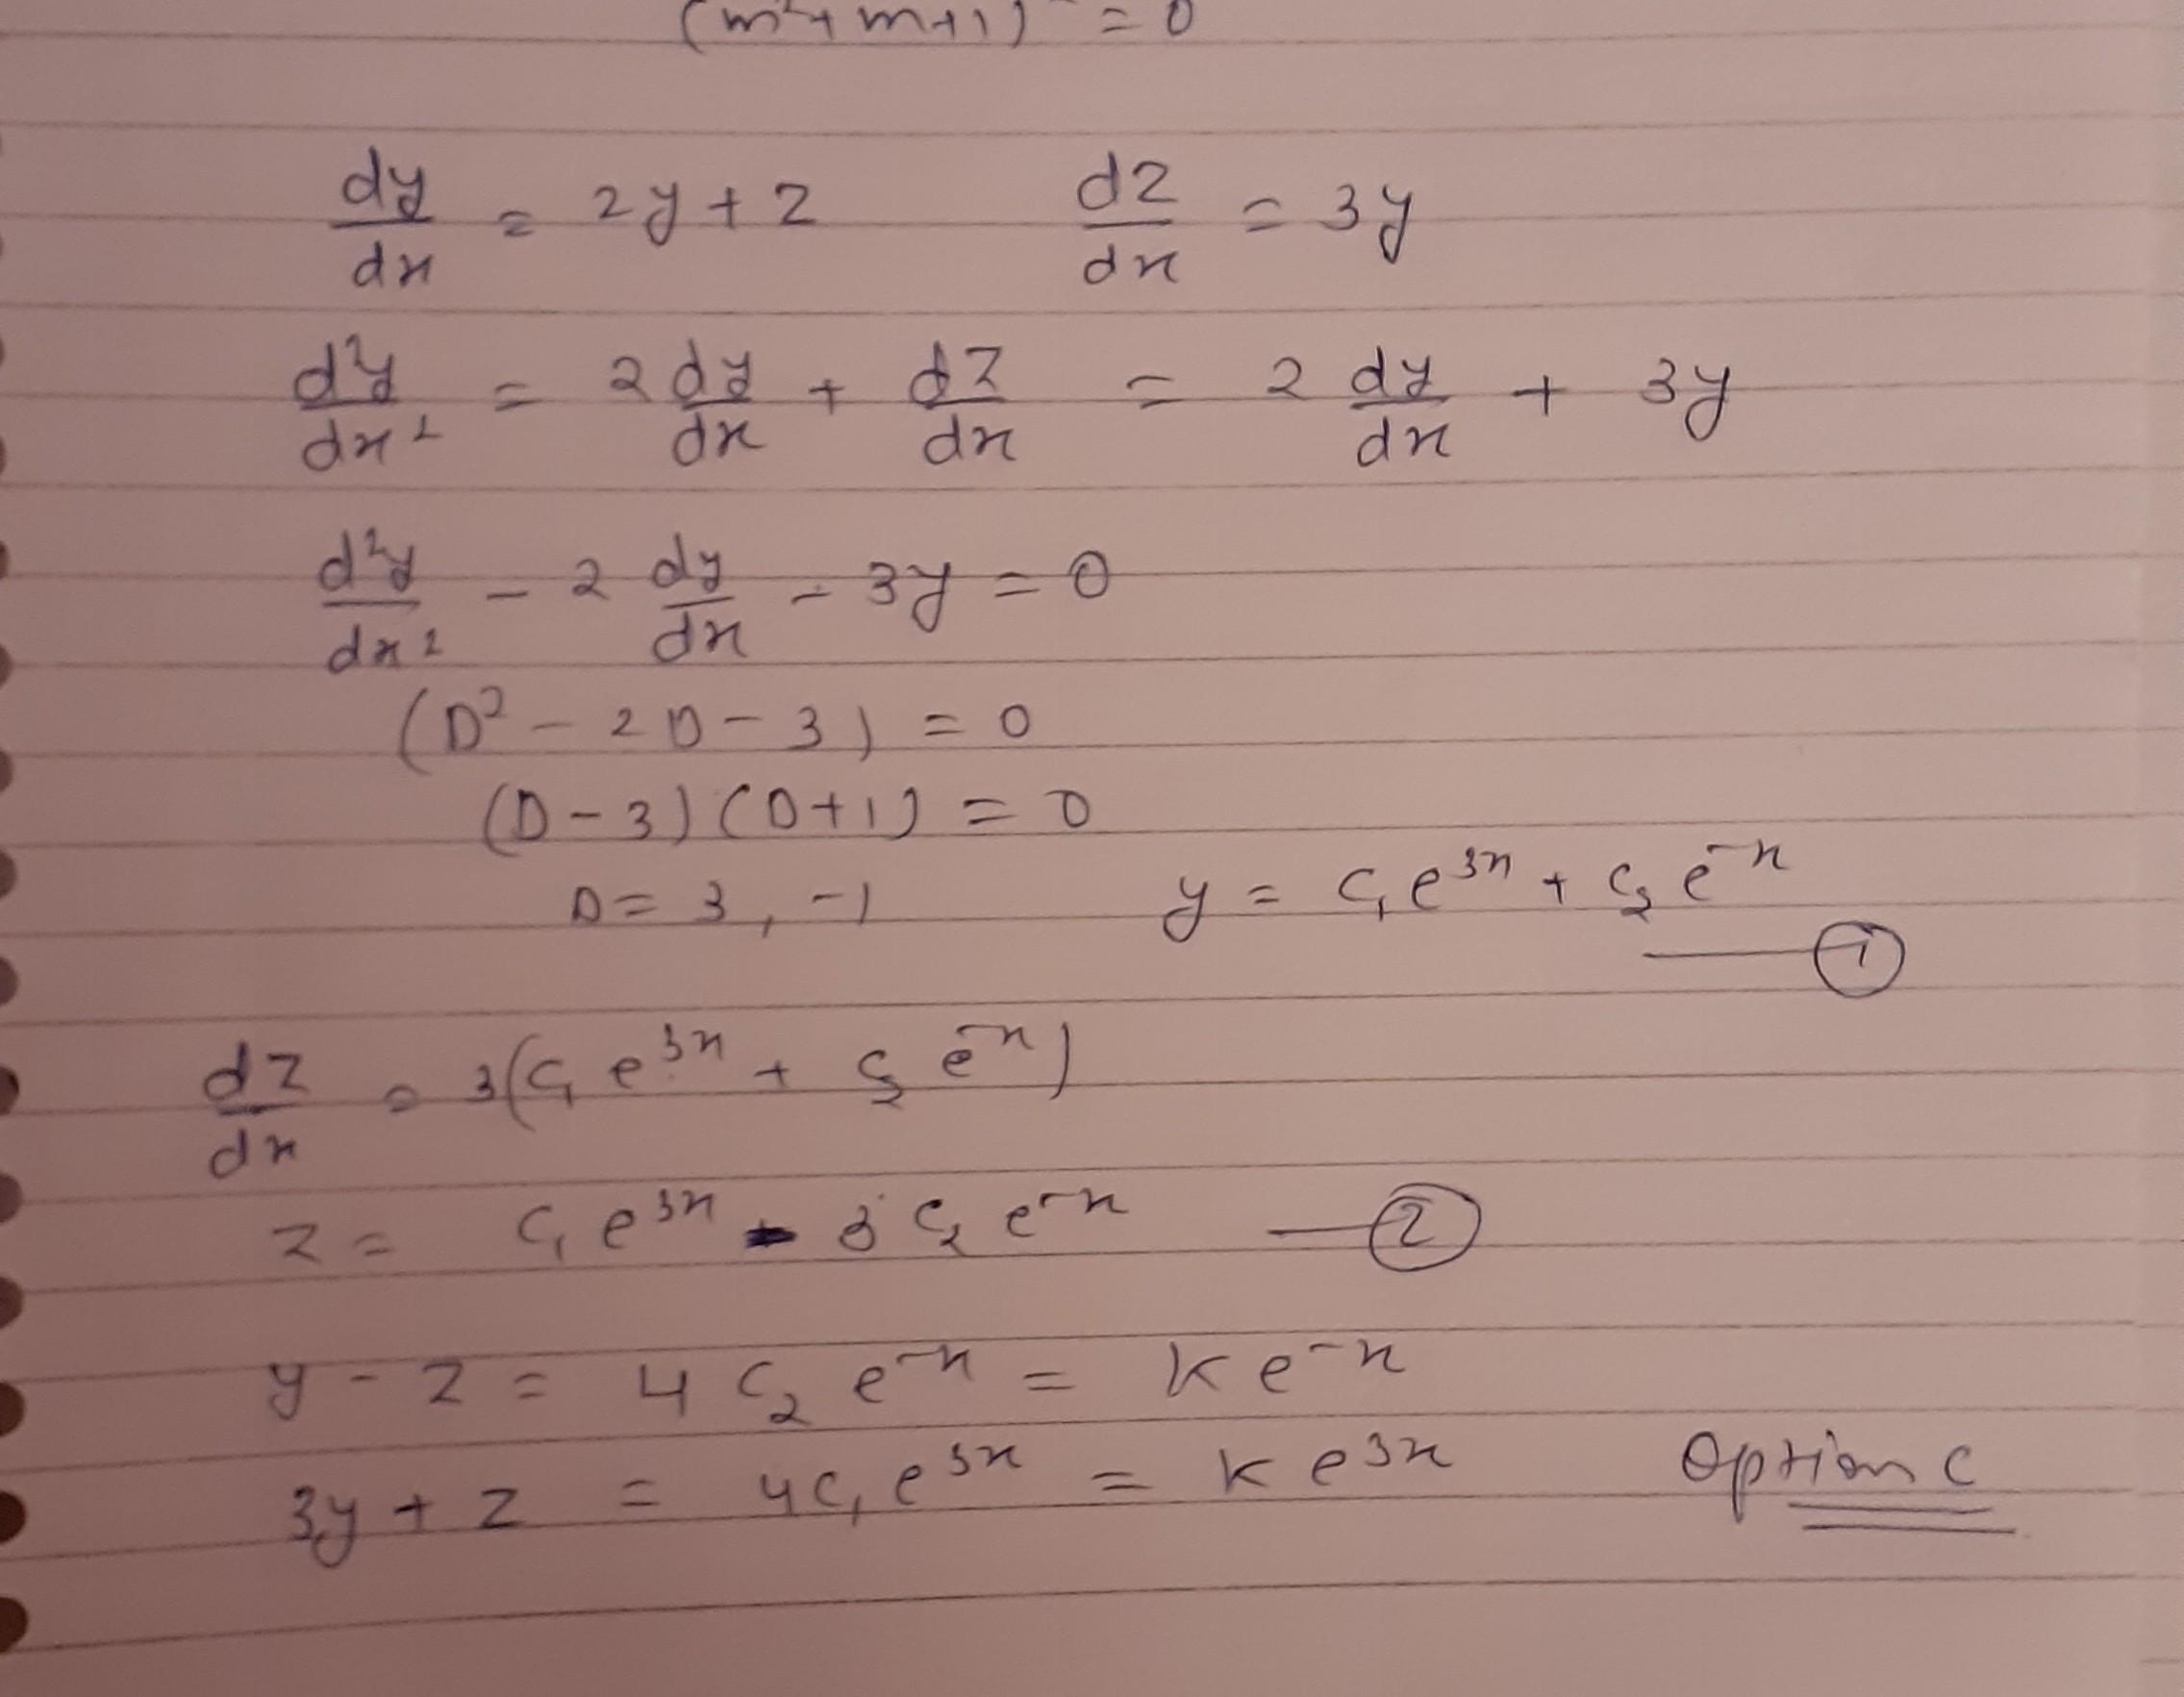 (m²+m+1) = 0
dy/dx = 2y+z dz/dx = 3y
d²y/dx² = 2 dy/dx + dz/dx = 2 dy/dx + 3y
d²y/dx² - 2 dy/dx - 3y = 0
(D² - 2D - 3) = 0
(D-3)(D+1) = 0
D = 3, -1 y = C₁e³ˣ + C₂e⁻ˣ
— ①
dz/dx = 3(C₁e³ˣ + C₂e⁻ˣ)
z = C₁e³ˣ - 3C₂e⁻ˣ — ②
y - z = 4C₂e⁻ˣ = ke⁻ˣ
3y + z = 4C₁e³ˣ = ke³ˣ Option C